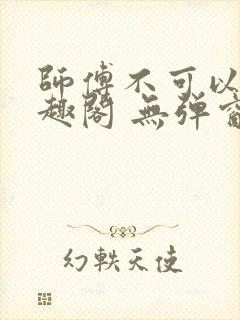 師傅不可以
趣閣 無弹窗
幻軼天使